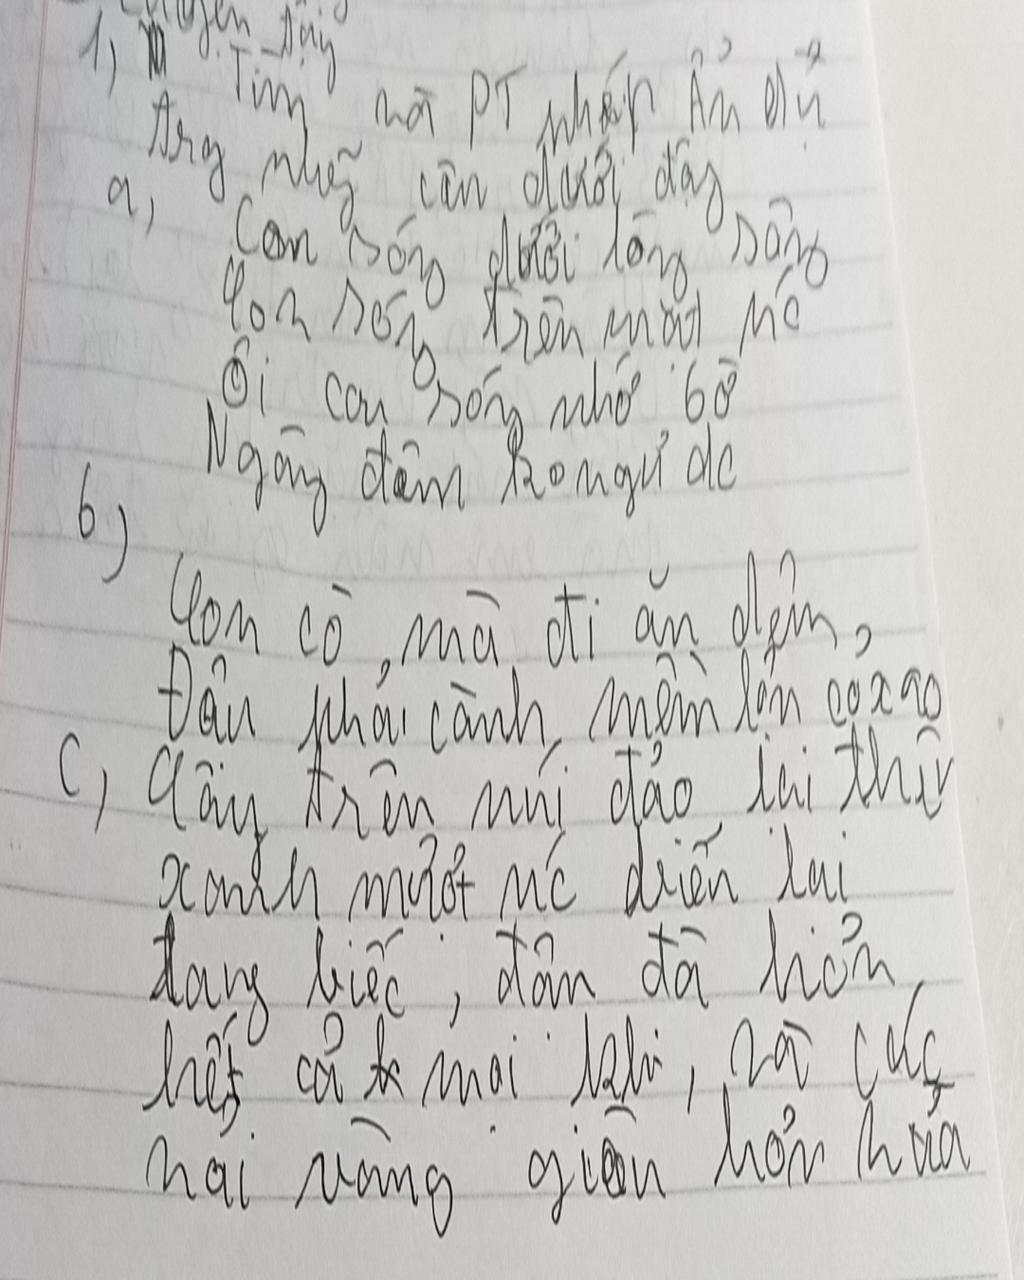 chuyên đây
1, Tìm và PT phép ẩn dụ
trg những câu dưới đây
a, Con sóng dưới lòng sông
Con sóng trên mặt nc
Ôi con sóng nhớ bờ
Ngày đêm ko ngủ dc
b)
Con cò mà đi ăn đêm,
Đậu phải cành mềm lộn cổ xao
c, Cây trên núi đảo lại thêm
xanh mượt nc biển lại
đang biếc, đậm đà hơn
hết cả mọi khi, và cát
hại vàng giòn hơn nữa